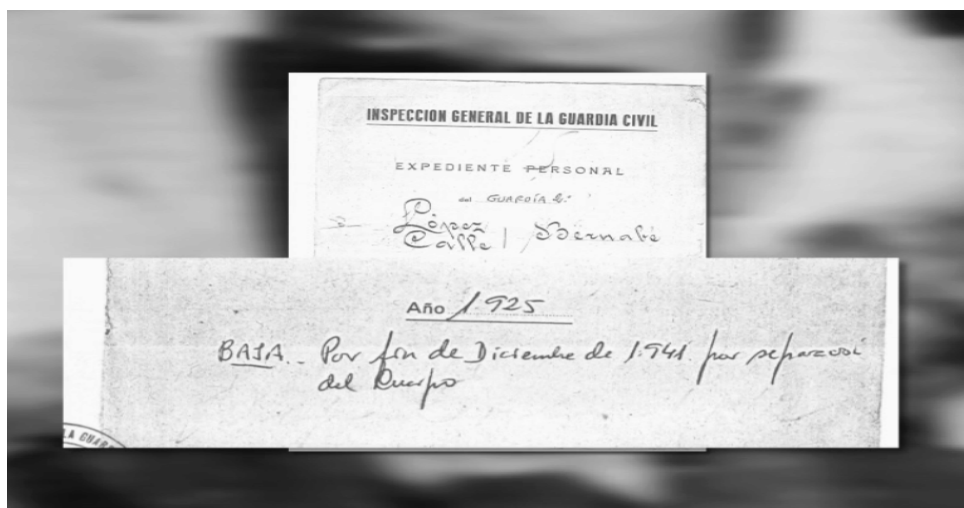 INSPECCION GENERAL DE LA GUARDIA CIVIL
EXPEDIENTE PERSONAL
del GUARDIA 2.º
López
Calle | Bernabé
Año 1.925
BAJA.- Por fin de Diciembre de 1.941. por separación
del Cuerpo
LA GUAR